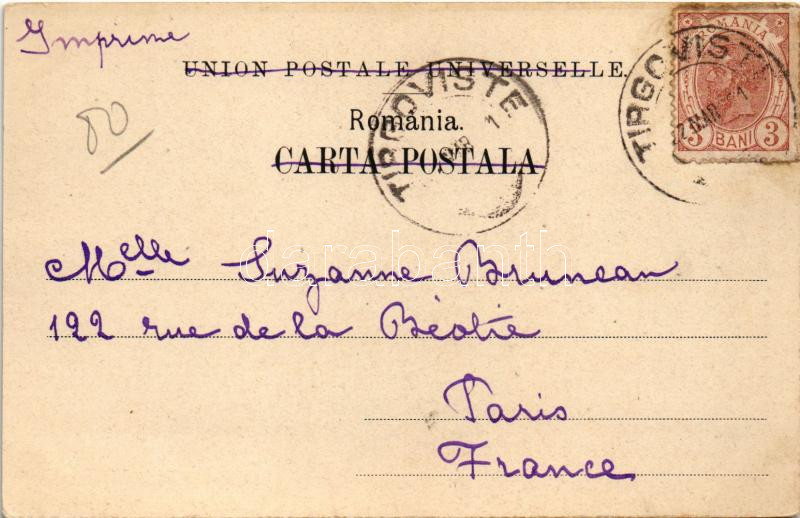 Imprime
UNION POSTALE UNIVERSELLE.
ROMANIA
3 BANI 3
TIRGOVISTE
TIRGOVISTE
80
România.
CARTA POSTALA
Melle Suzanne Bruneau
122 rue de la Béotie
Paris
France
darabanth